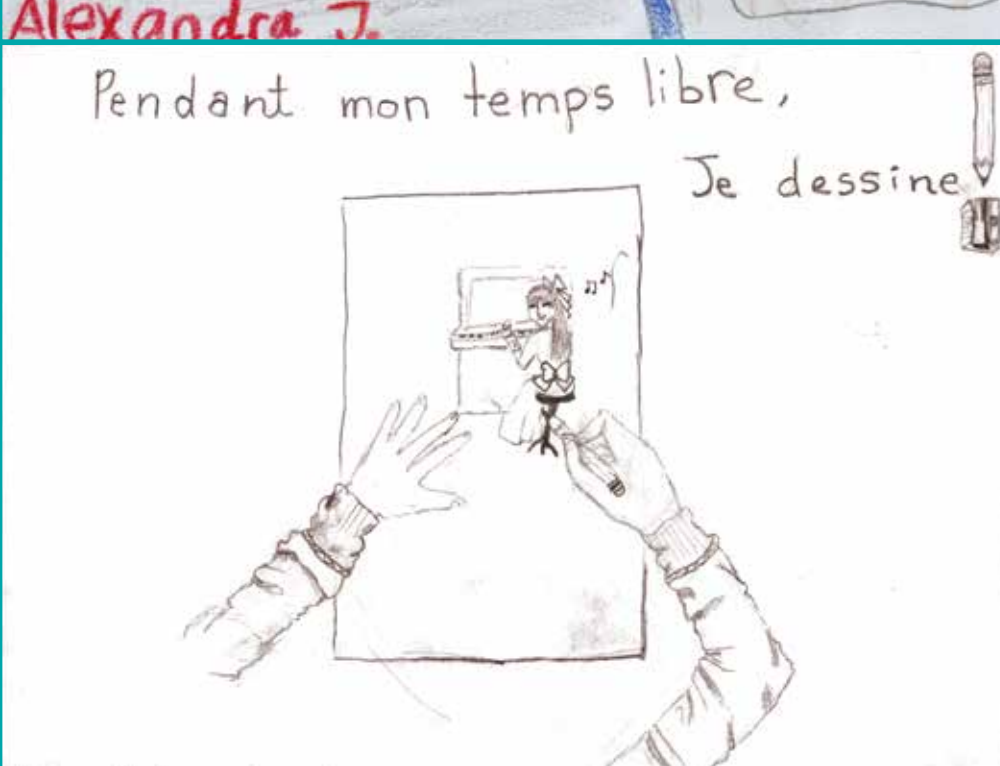 Alexandra J.
Pendant mon temps libre,
Je dessine